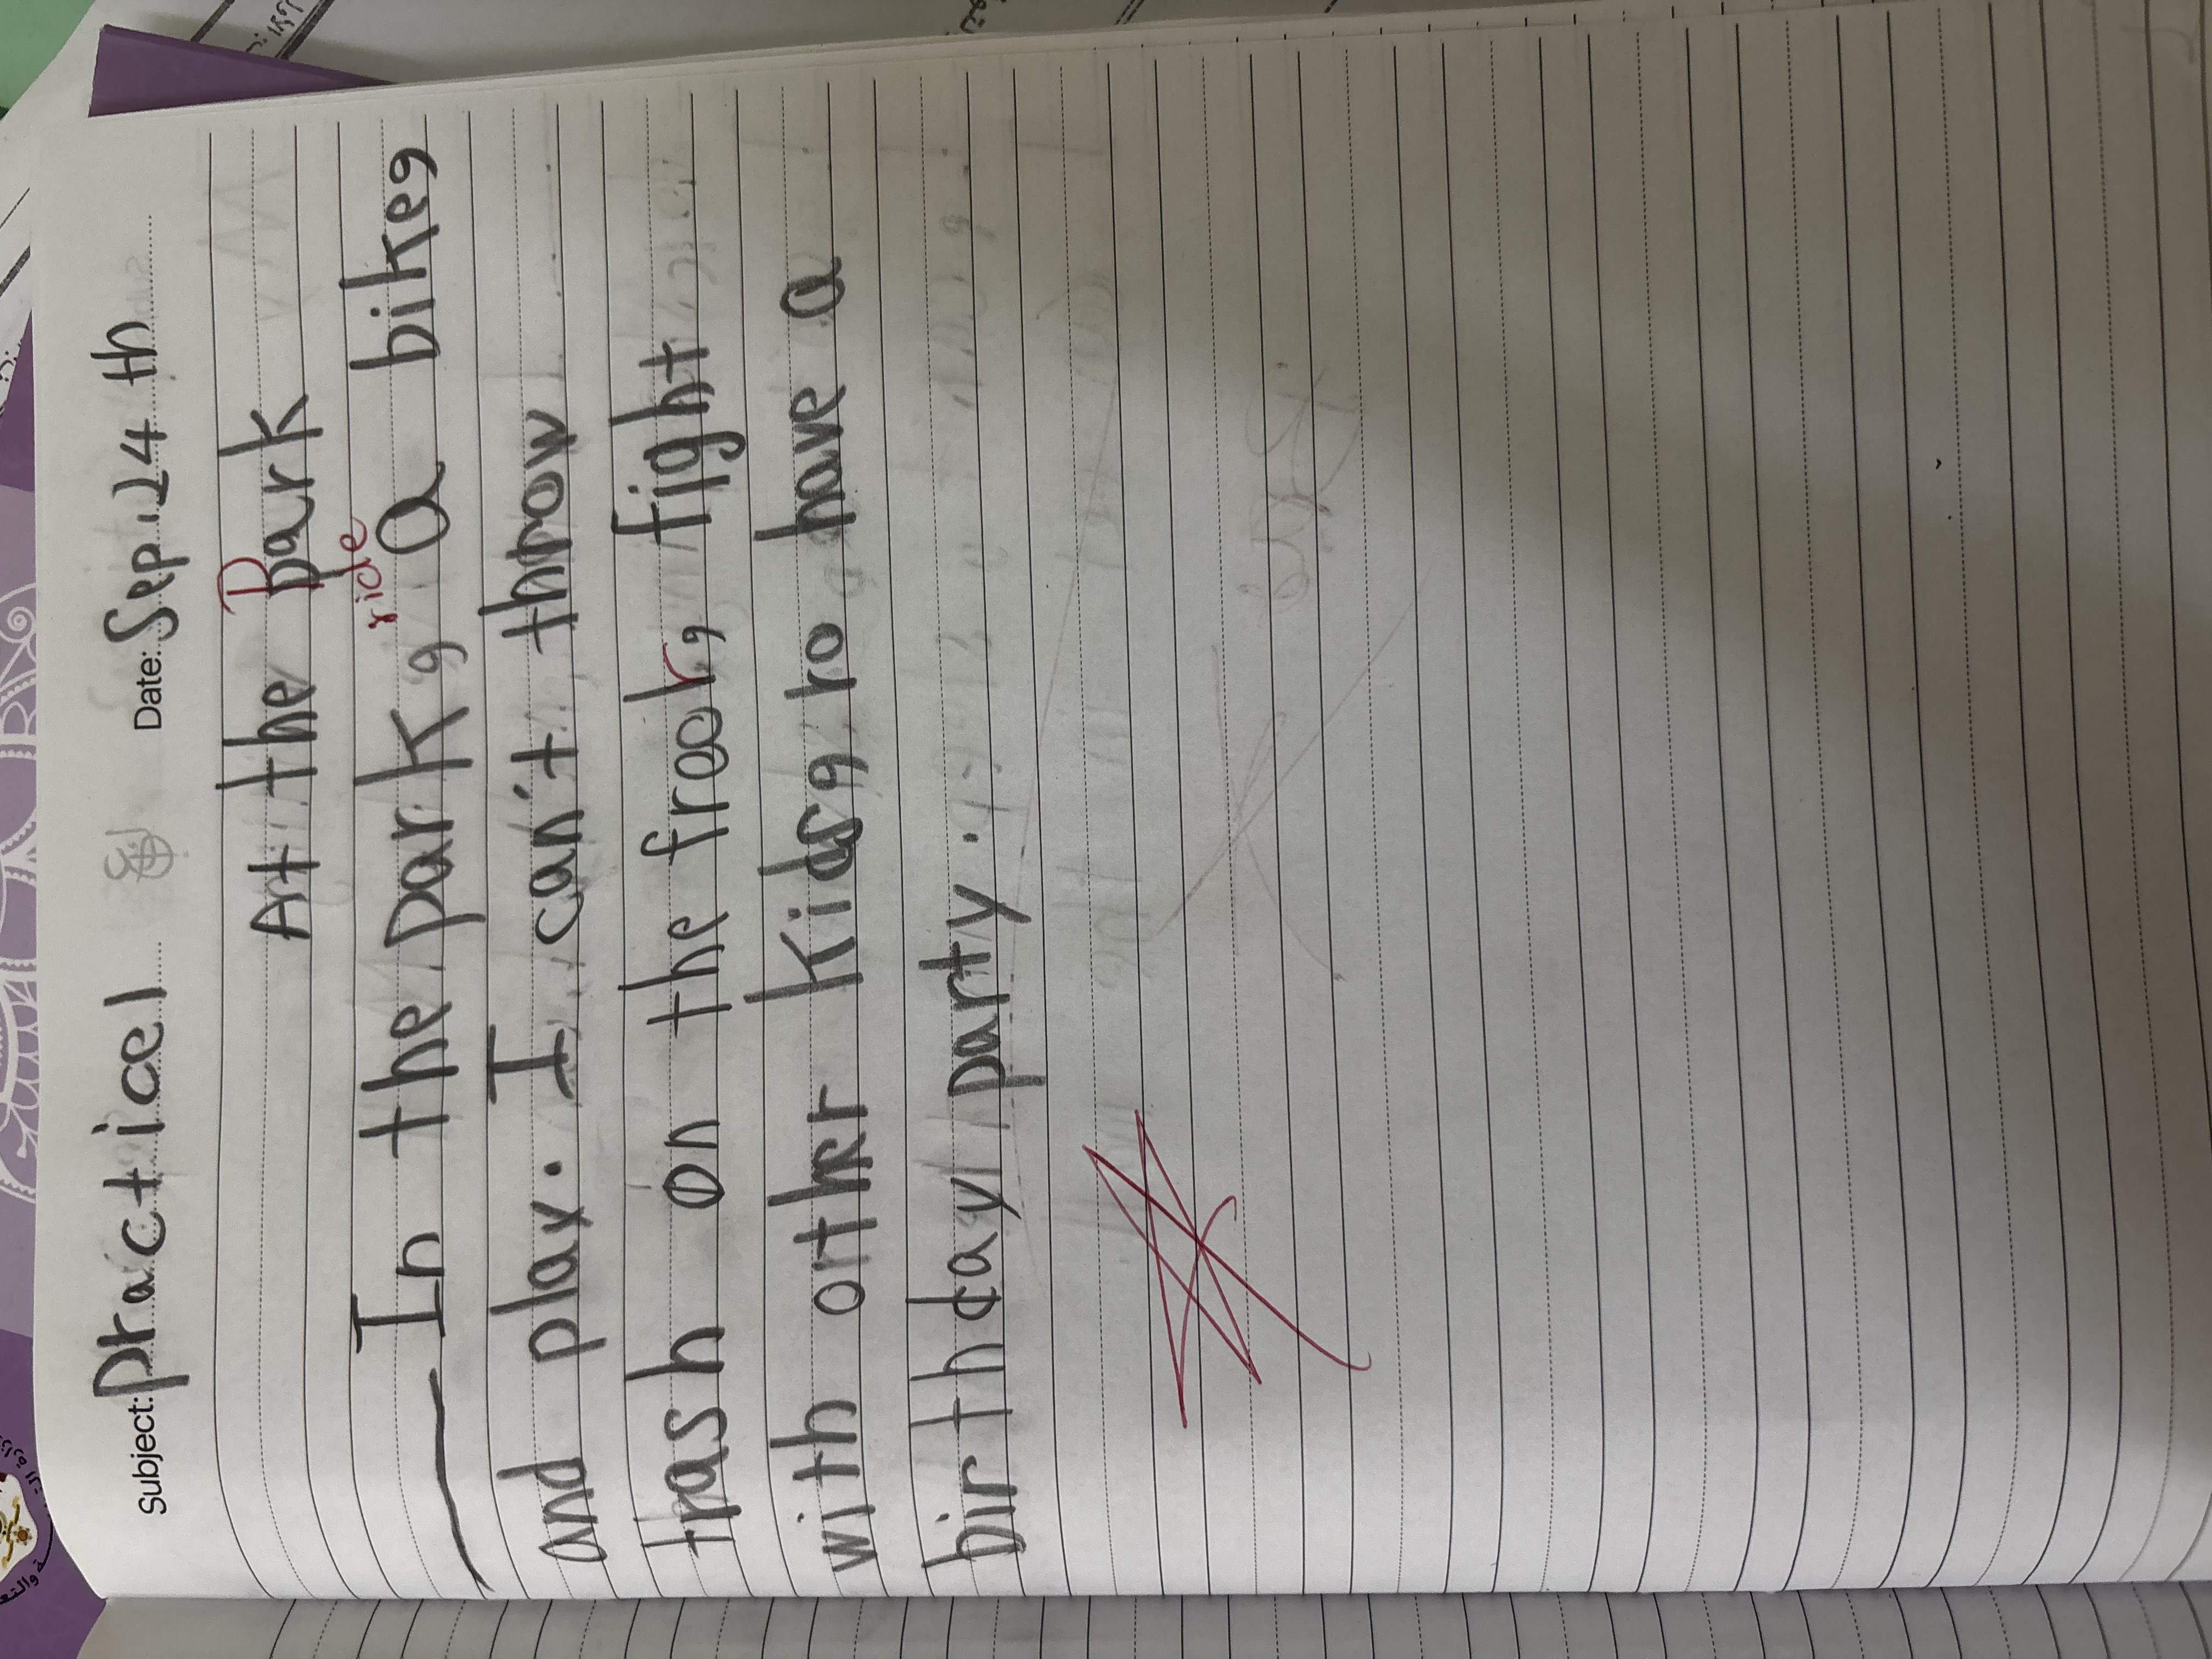 Subject: practice1 Date: Sep.24 th
At the Park
ride
In the park, a bike,
and play. I can't throw
trash on the froolr, fight
with other kids, ro have a
birthday party.